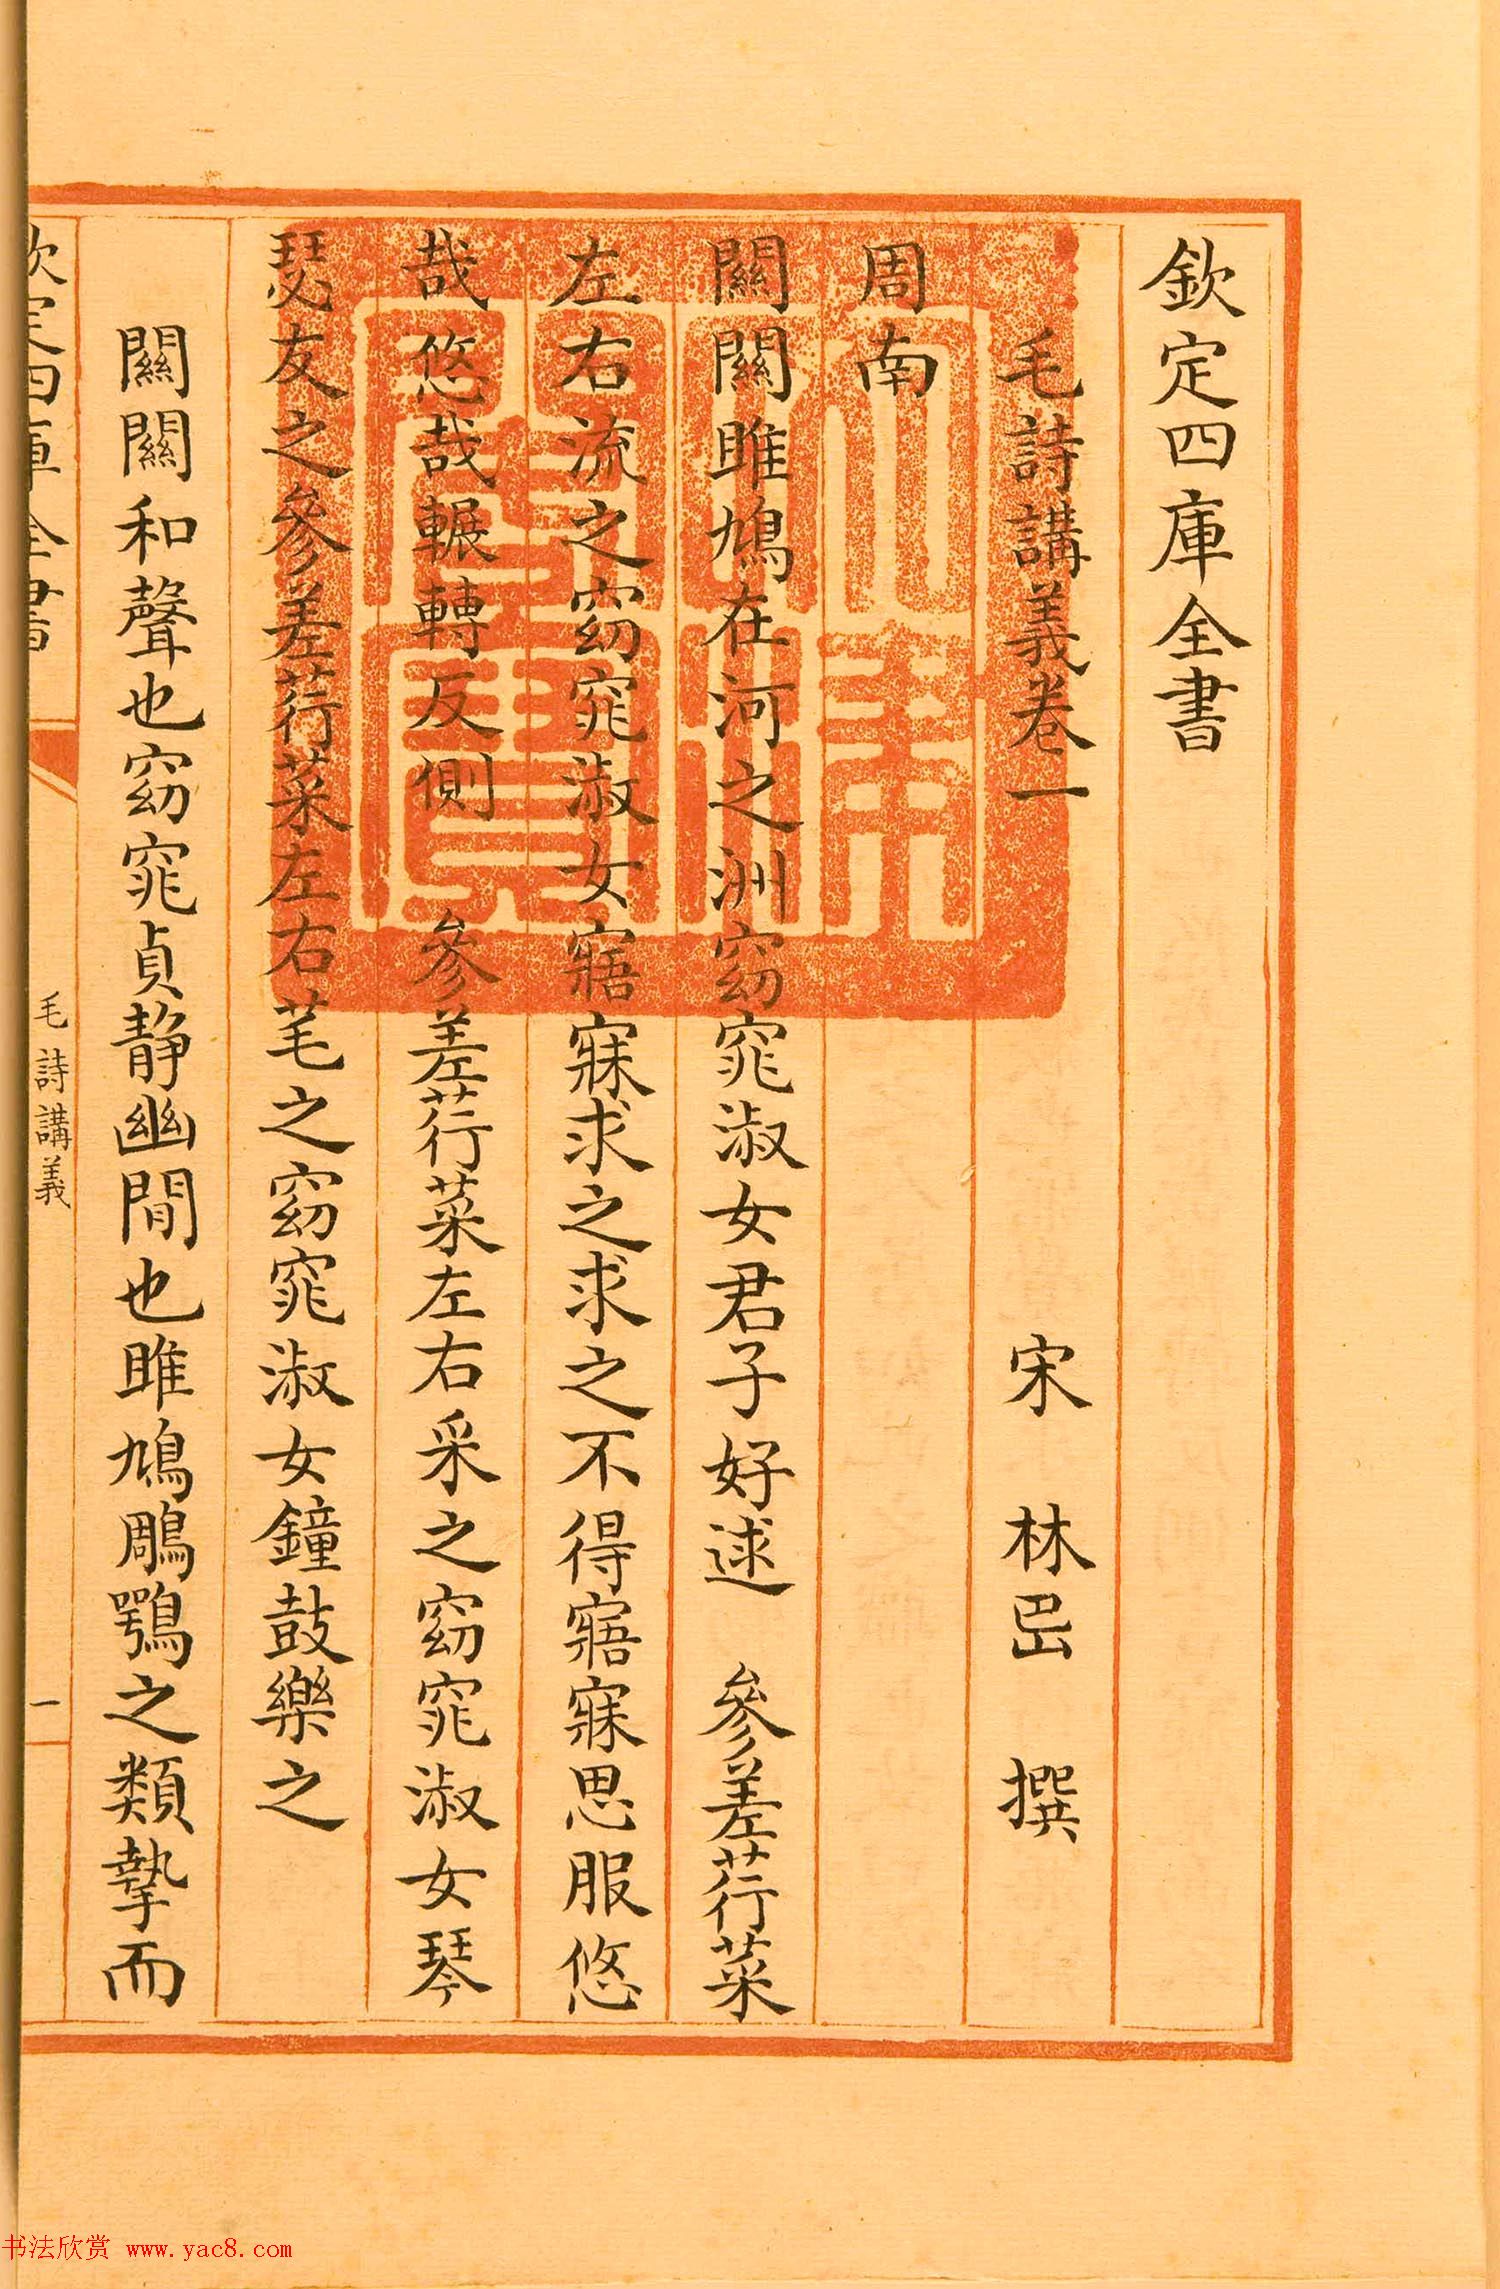 欽定四庫全書
毛詩講義卷一 宋 林岊 撰
周南
關關雎鳩在河之洲窈窕淑女君子好逑 參差荇菜
左右流之窈窕淑女寤寐求之求之不得寤寐思服悠
哉悠哉輾轉反側 參差荇菜左右采之窈窕淑女琴
瑟友之參差荇菜左右芼之窈窕淑女鐘鼓樂之
關關和聲也窈窕貞静幽閒也雎鳩鵰鶚之類摯而
欽定四庫全書
毛詩講義
一
书法欣赏 www.yac8.com